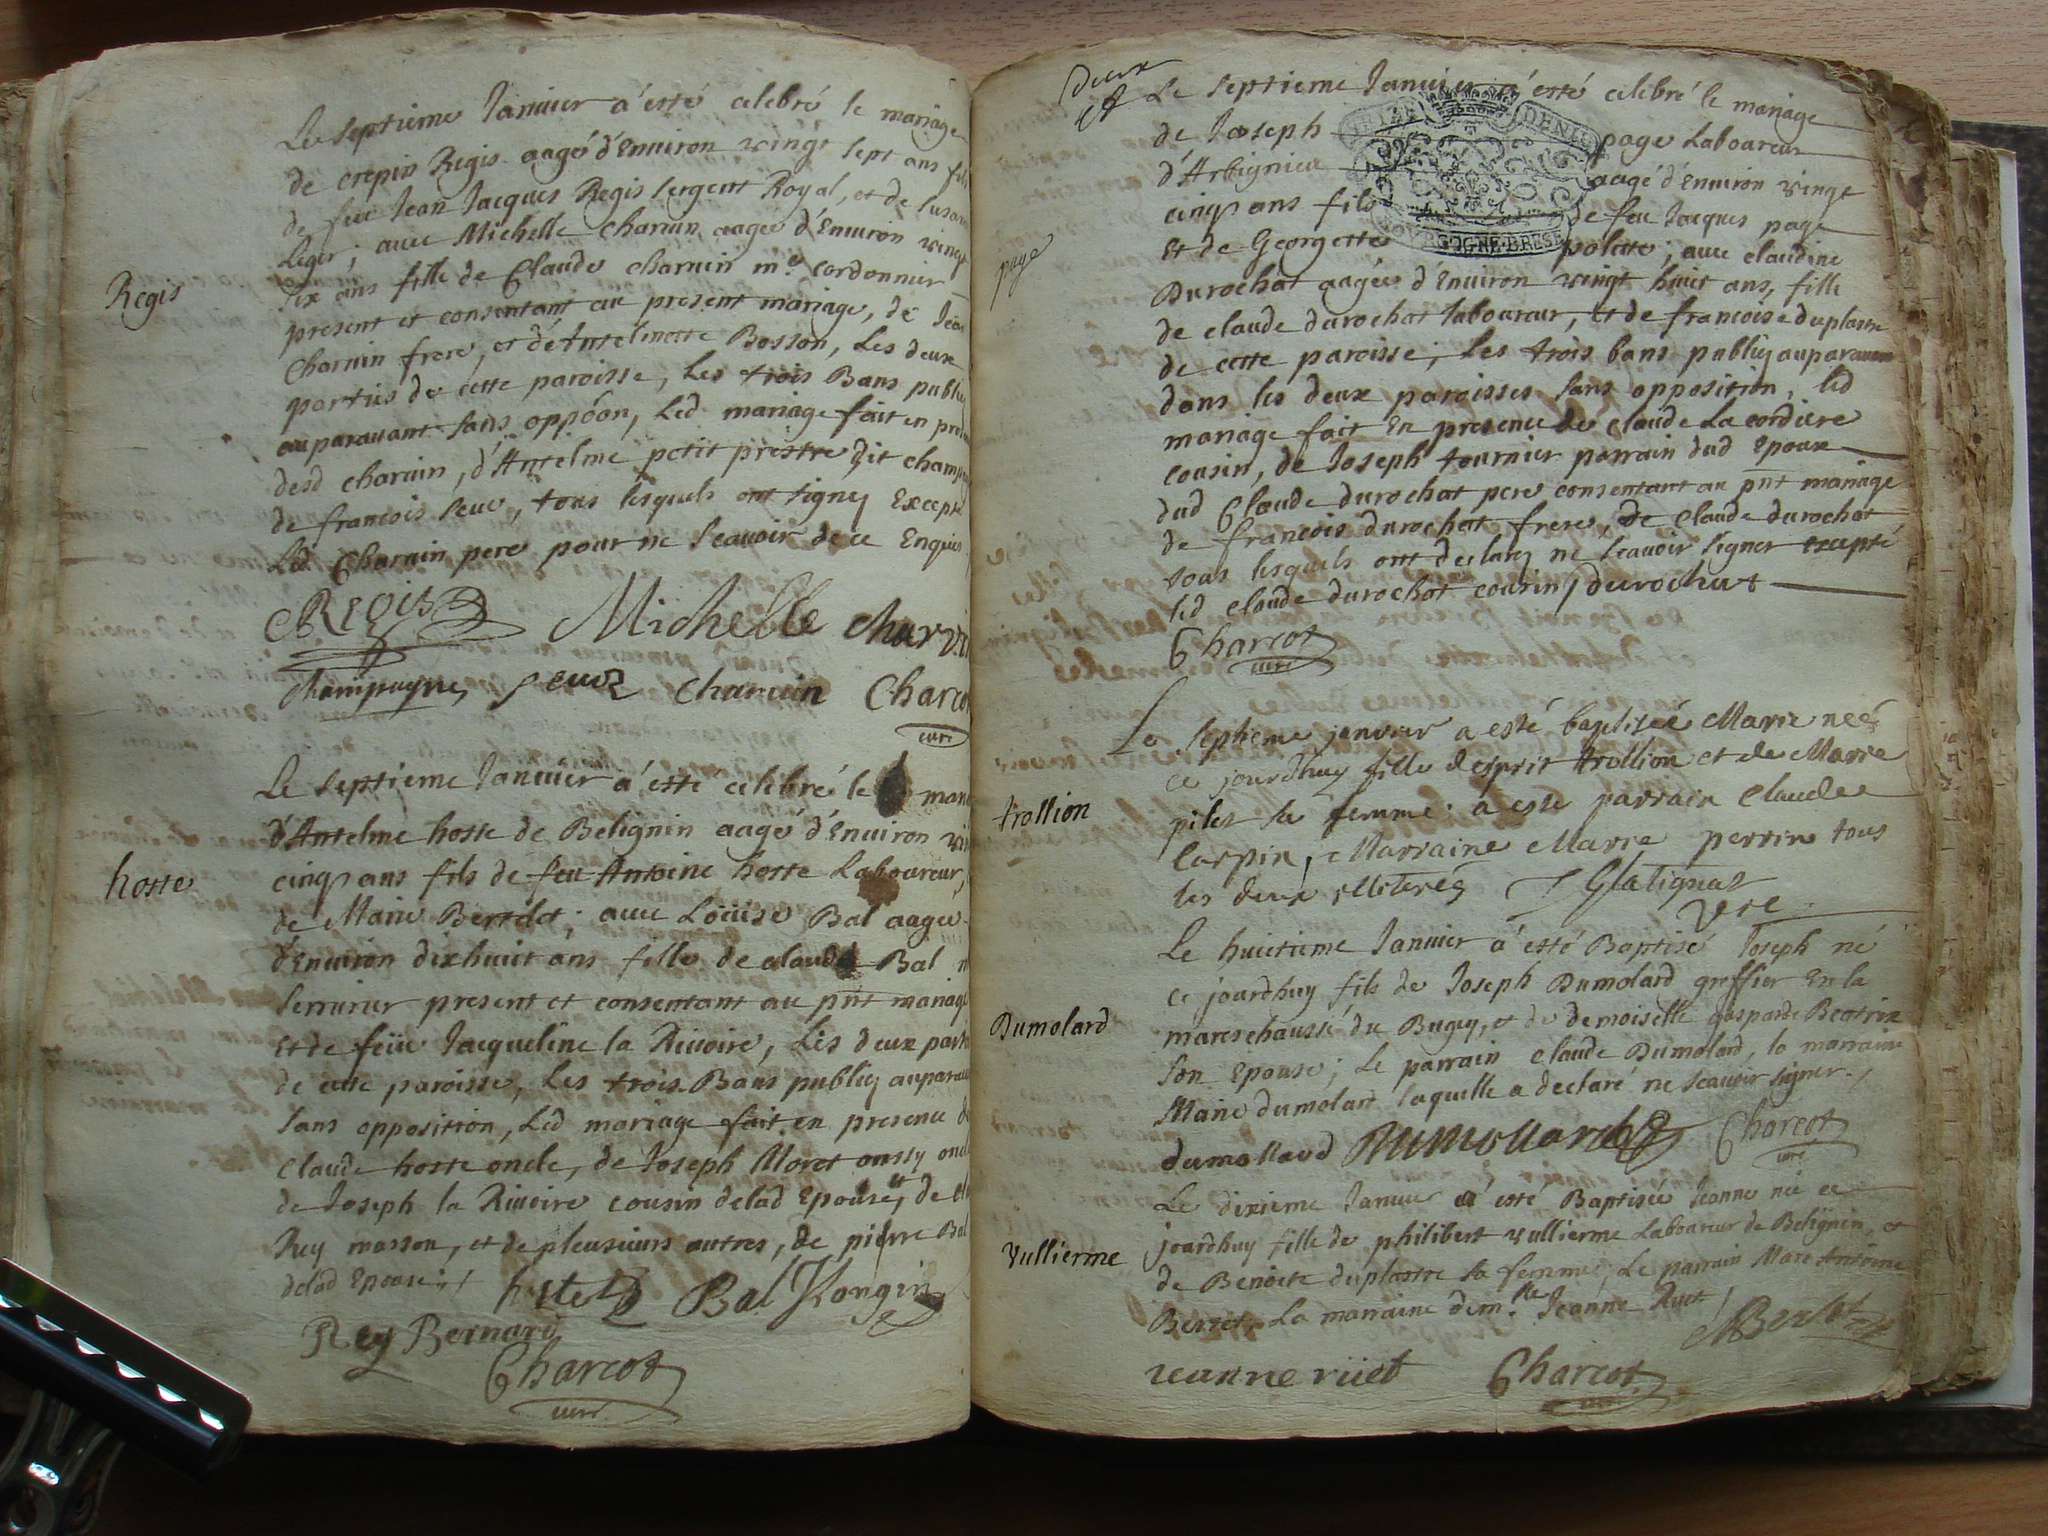 Le septieme Januier a esté celebré le mariage
de crepin Regis aagé d'Enuiron vingt sept ans fils
de feu Jean Jacques Regis sergent Royal, et de susan
leger; auec Michelle charuin aagée d'Enuiron vingt
six ans fille de Claude charuin me. cordonnier
Regis
present et consentant au present mariage, de Jean
charuin frere, et d'Antelmette Bosson, Les deux
parties de cette paroisse, Les trois Bans publiez
auparauant sans oppōon, Led. mariage fait en pre
desd charuin, d'Antelme petit prestre dit champ
de francois seue, tous lesquels ont signez Excepté
Led Charuin pere pour ne scauoir de ce Enquis
Regis Michelle charvi
champagne, seuoz charuin Charco
curé
Le septieme Januier a esté celebré le mari
d'Antelme hoste de Belignin aagé d'Enuiron vin
hoste
cinq ans fils de feu Antoine hoste Laboureur,
de Marie Bertelet; auec Loüise Bal aagée
d'Enuiron dixhuict ans fille de claude Bal
serrurier present et consentant au pn̄t mariage
Et de feüe Jacqueline la Riuoire, Les deux parti
de cette paroisse, Les trois Bans publiez auparau
sans opposition, Led mariage fait en presence de
Claude hoste oncle, de Joseph Moret aussy oncle
de Joseph la Riuoire cousin delad Epouse, et de
Rey masson, et de pleusieurs autres, de pierre Bal
delad Epouse
hoste Bal Kongin
Rey Bernard
Charcot
curé
deux
Le septieme Januier a esté celebré le mariage
de Joseph page Laboureur
d'Arbignieu aagé d'Enuiron vingt
cinq ans fils de feu Jacques page
Et de Georgette politte; auec claudine
GENER DENIER
BOURGOGNE-BRESSE
page
Durochat aagée d'Enuiron vingt huict ans, fille
de claude durochat laboureur, et de francoise duplastre
de cette paroisse; Les trois bans publiez auparauant
dans les deux paroisses sans opposition, led
mariage fait En presence de claude La cordiere
cousin, de Joseph tournier parrain dud Epoux
dud Claude durochat pere consentant au pn̄t mariage
de francois durochat frere, de claude durochat
tous lesquels ont declarez ne scauoir signer excepté
led claude durochat cousin durochat
Charcot
curé
Le septieme januier a esté baptiseé Marie neé
ce jourdhuy fille desprit trollion et de Marie
trollion
pilet sa femme. a esté parrain Claude
Carpin, Marraine Marie perrin tous
les deux illiterés Glatignat
vre
Le huictieme Januier a esté Baptisé Joseph né
ce jourdhuy fils de Joseph Dumolard greffier En la
Dumolard
mareschaussé du Bugey, et de demoiselle gasparde Beatrix
son Epouse; Le parrain claude Dumolard, la marraine
Marie dumolart laquelle a declaré ne scauoir signer.
dumollard Dumollard Charcot
curé
Le dixieme Januier a esté Baptisée Jeanne née ce
jourdhuy fille de philibert vullierme Laboureur de Belignin, et
Vullierme
de Benoite duplastre sa femme; Le parrain Marc Antoine
Berret, La marraine demlle Jeanne Ruet
MBerlet
jeanne rüet Charcot
curé